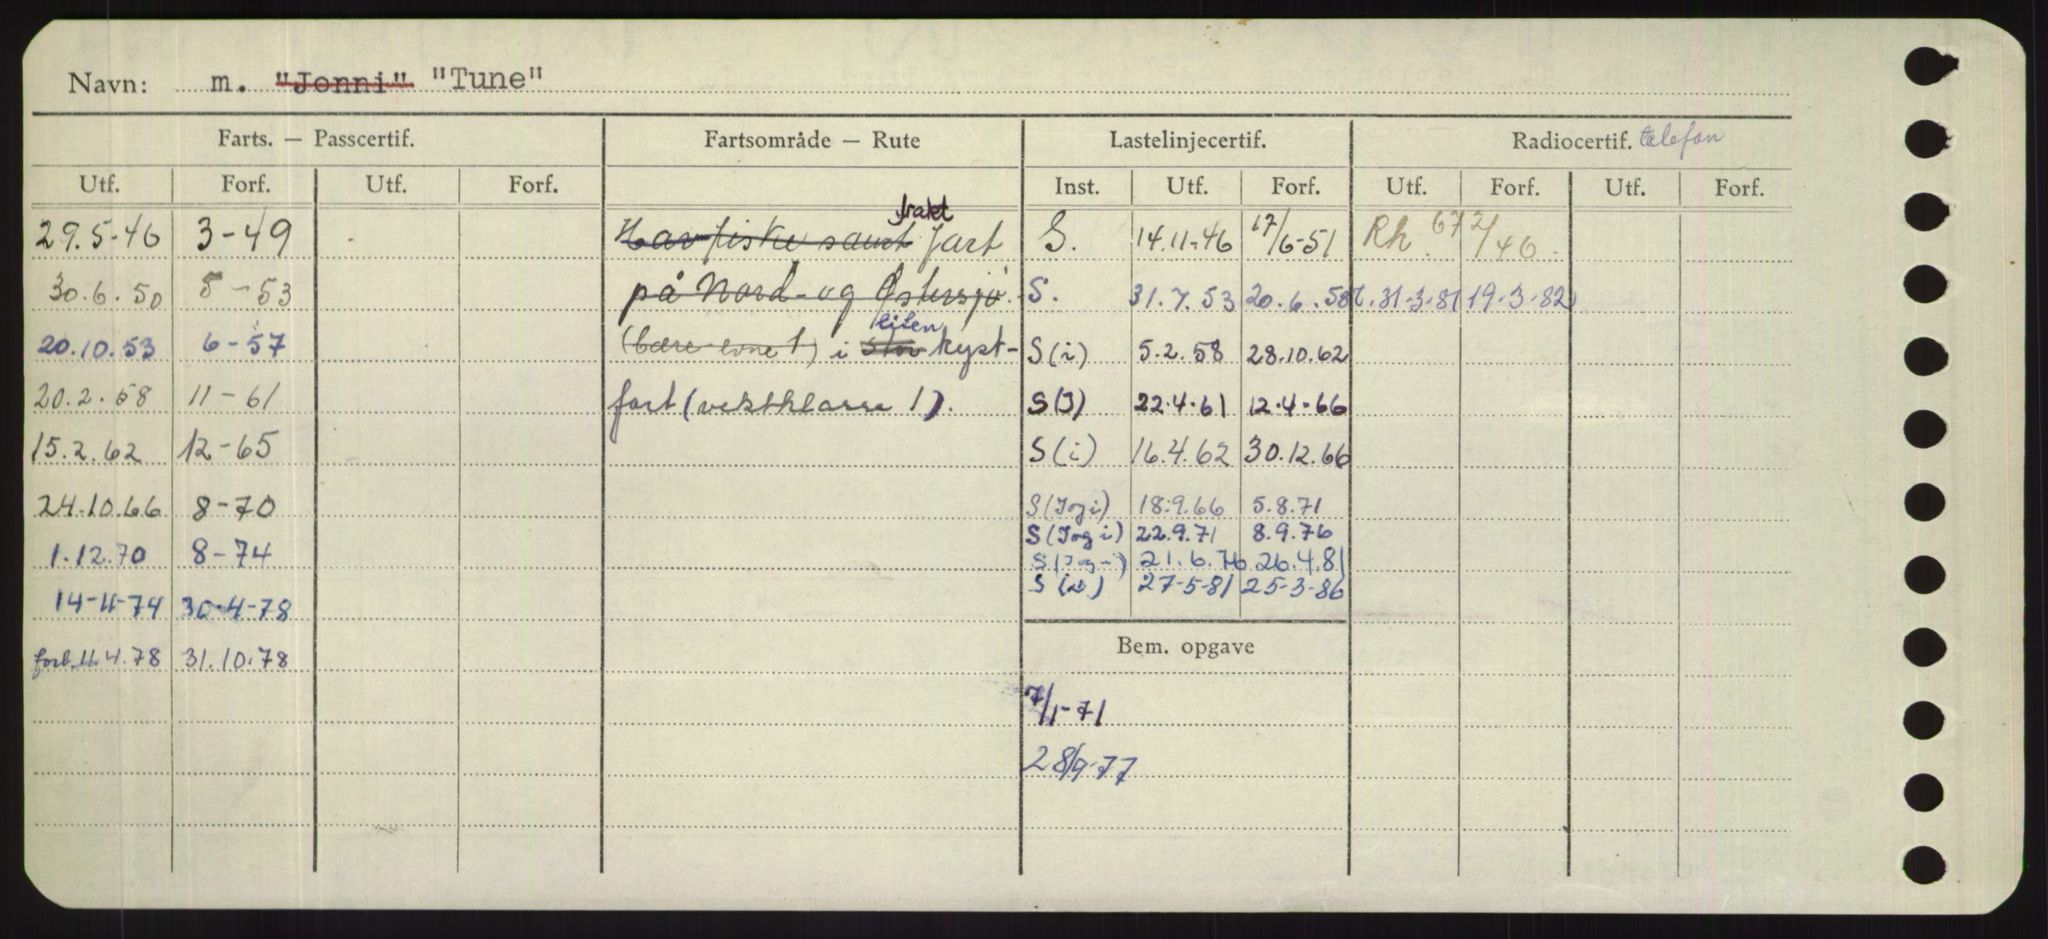 Navn: m. "Jonni" "Tune"
Farts. — Passcertif. Fartsområde — Rute Lastelinjecertif. Radiocertif. telefon
Utf. Forf. Utf. Forf. Inst. Utf. Forf. Utf. Forf. Utf. Forf.
frakt
29.5-46 3-49 Havfiske samt fart S. 14.11-46 17/6-51 Rh. 67 2/46.
30.6.50 5-53 på Nord- og Østersjø. S. 31.7.53 20.6.58 t. 31-3-81 19-3-82
liten
20.10.53 6-57 (bære evne 1) i stor kyst- S(i) 5.2.58 28.10.62
20.2.58 11-61 fart (vektklasse 1). S(J) 22.4.61 12.4.66
15.2.62 12-65 S(i) 16.4.62 30.12.66
24.10.66 8-70 S(Jog i) 18.9.66 5.8.71
S(Jog i) 22.9.71 8.9.76
1.12.70 8-74 S(Jog i) 21.6.76 26.4.81
14-11-74 30-4-78 S 27-5-81 25-3-86
forl. 11.4.78 31.10.78
Bem. opgave
7/1-71
28/9-77